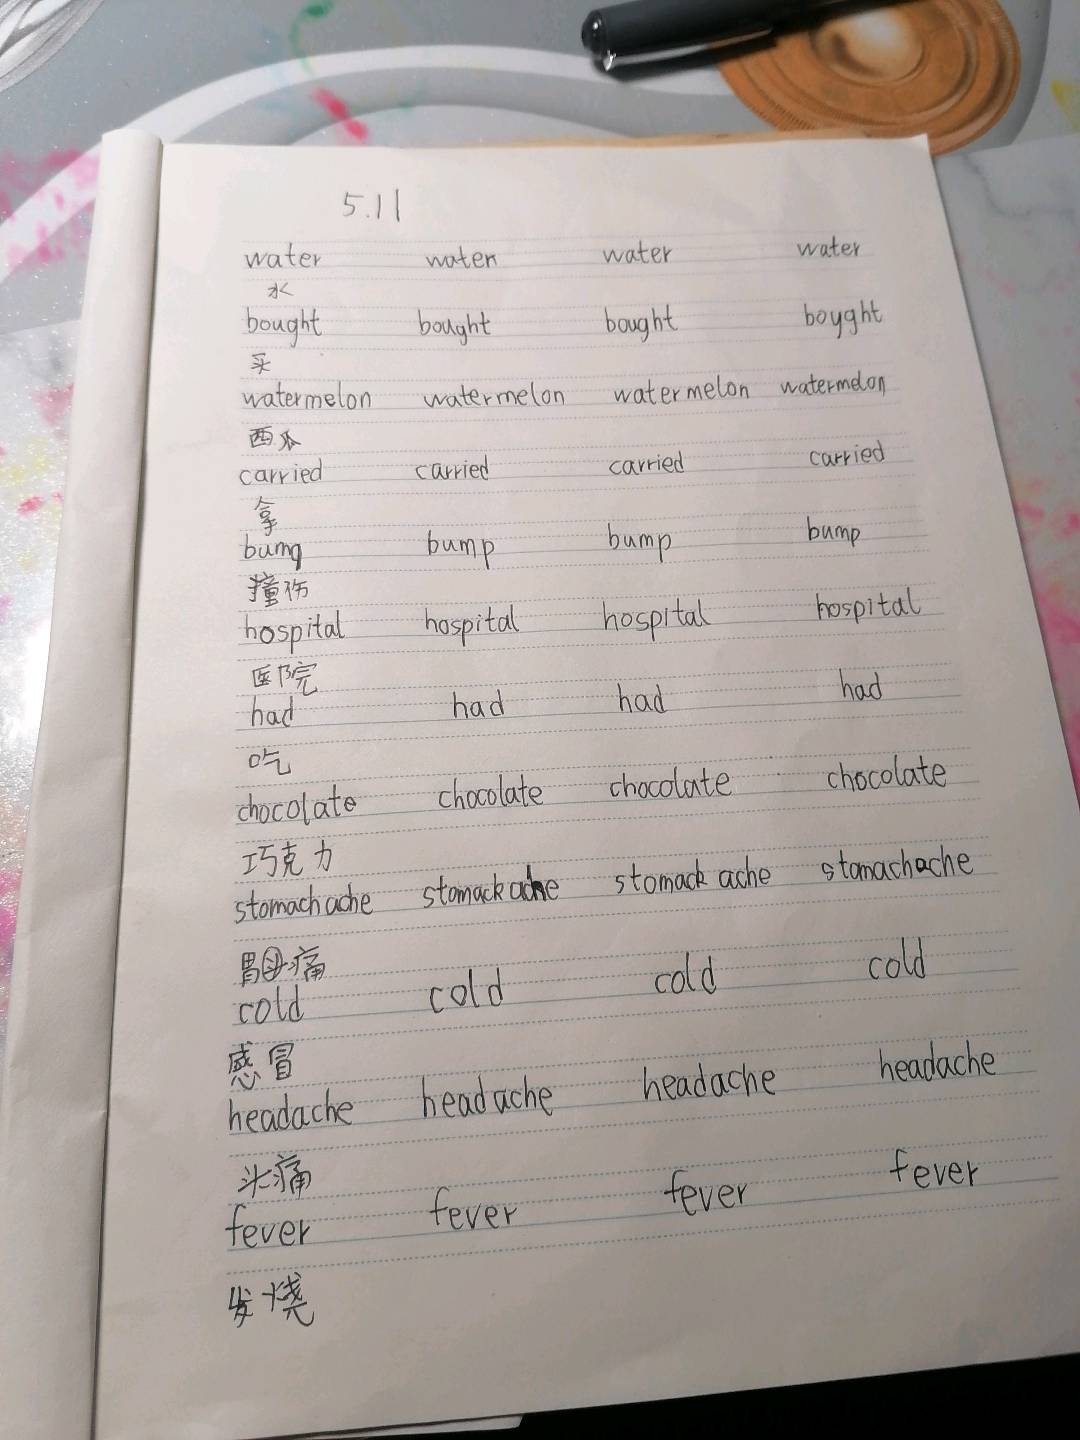 5.11
water water water water
水
bought bought bought boyght
买
watermelon watermelon watermelon watermelon
西瓜
carried carried carried carried
拿
bumq bump bump bump
撞伤
hospital hospital hospital hospital
医院
had had had had
吃
chocolate chocolate chocolate chocolate
巧克力
stomachache stomackache stomackache stomachache
胃痛
cold cold cold cold
感冒
headache headache headache headache
头痛
fever fever fever fever
发烧